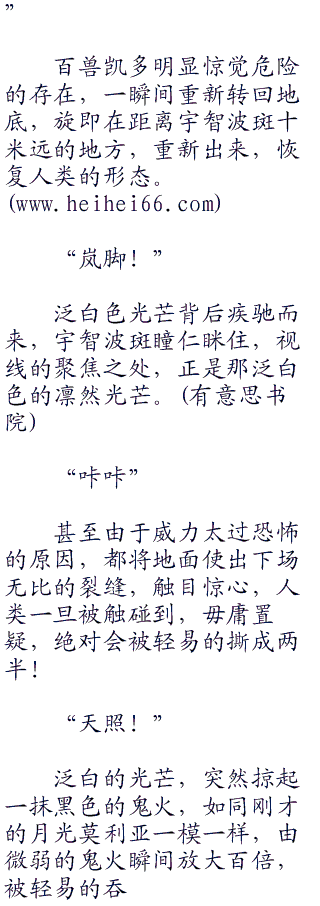 ”
百兽凯多明显惊觉危险
的存在，一瞬间重新转回地
底，旋即在距离宇智波斑十
米远的地方，重新出来，恢
复人类的形态。
(www.heihei66.com)
“岚脚！”
泛白色光芒背后疾驰而
来，宇智波斑瞳仁眯住，视
线的聚焦之处，正是那泛白
色的凛然光芒。(有意思书
院)
“咔咔”
甚至由于威力太过恐怖
的原因，都将地面使出下场
无比的裂缝，触目惊心，人
类一旦被触碰到，毋庸置
疑，绝对会被轻易的撕成两
半！
“天照！”
泛白的光芒，突然掠起
一抹黑色的鬼火，如同刚才
的月光莫利亚一模一样，由
微弱的鬼火瞬间放大百倍，
被轻易的吞